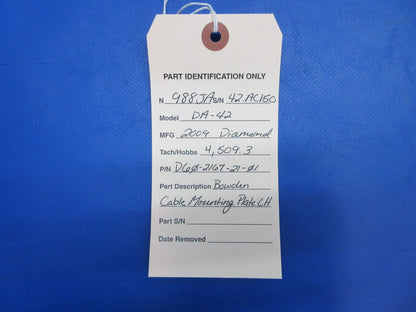 PART IDENTIFICATION ONLY
N 988JA S/N 42.AC150
Model DA-42
MFG 2009 Diamond
Tach/Hobbs 4,509.3
P/N D60-2167-21-01
Part Description Bowden
Cable Mounting Plate LH
Part S/N
Date Removed